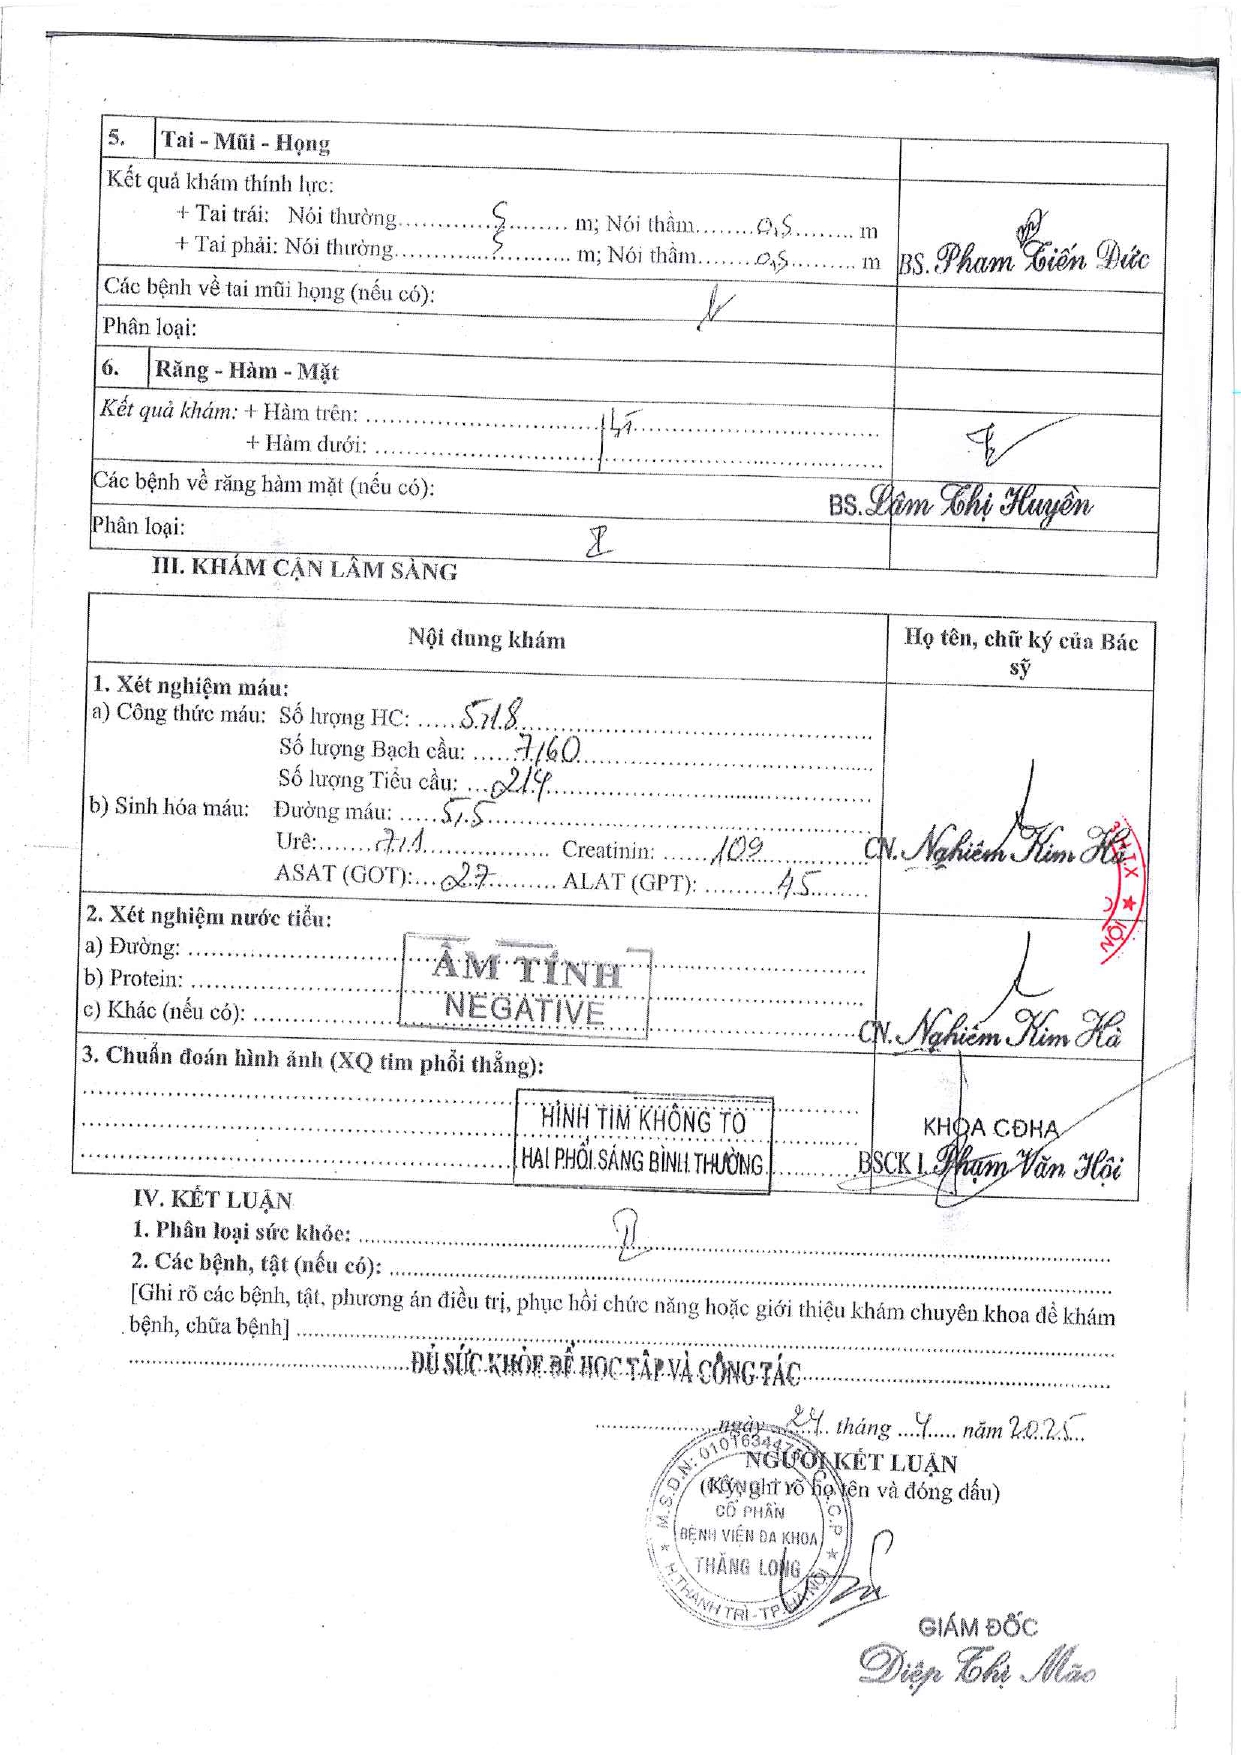 5. Tai - Mũi - Họng
Kết quả khám thính lực:
+ Tai trái: Nói thường............5......... m; Nói thầm........0,5........ m
+ Tai phải: Nói thường............5......... m; Nói thầm........0,5......... m
BS. Phạm Tiến Đức
Các bệnh về tai mũi họng (nếu có):
Phân loại:
6. Răng - Hàm - Mặt
Kết quả khám: + Hàm trên: ........................................
+ Hàm dưới: ........................................
Các bệnh về răng hàm mặt (nếu có):
BS. Lâm Thị Huyền
Phân loại:
III. KHÁM CẬN LÂM SÀNG
Nội dung khám
Họ tên, chữ ký của Bác sỹ
1. Xét nghiệm máu:
a) Công thức máu: Số lượng HC: .....5,18........................
Số lượng Bạch cầu: ......7,60........................
Số lượng Tiểu cầu: ...214........................
b) Sinh hóa máu: Đường máu: .....5,5........................
Urê:.......7,1............... Creatinin: ......109............
CN. Nghiêm Kim Hà
ASAT (GOT):...27.......... ALAT (GPT): ..........45.......
2. Xét nghiệm nước tiểu:
a) Đường: ........................................
b) Protein: ........................................
c) Khác (nếu có): ........................................
ÂM TÍNH
NEGATIVE
CN. Nghiêm Kim Hà
3. Chuẩn đoán hình ảnh (XQ tim phổi thẳng):
HÌNH TIM KHÔNG TO
HAI PHỔI SÁNG BÌNH THƯỜNG
KHOA CĐHA
BSCK I. Phạm Văn Hội
IV. KẾT LUẬN
1. Phân loại sức khỏe: ........................................
2. Các bệnh, tật (nếu có): ........................................
[Ghi rõ các bệnh, tật, phương án điều trị, phục hồi chức năng hoặc giới thiệu khám chuyên khoa để khám
bệnh, chữa bệnh] ........................................
ĐỦ SỨC KHỎE ĐỂ HỌC TẬP VÀ CÔNG TÁC
ngày 24 tháng 4 năm 2025
NGƯỜI KẾT LUẬN
(Ký, ghi rõ họ tên và đóng dấu)
CỔ PHẦN
BỆNH VIỆN ĐA KHOA
THĂNG LONG
H.THANH TRÌ - TP.HÀ NỘI
GIÁM ĐỐC
Diệp Thị Mão